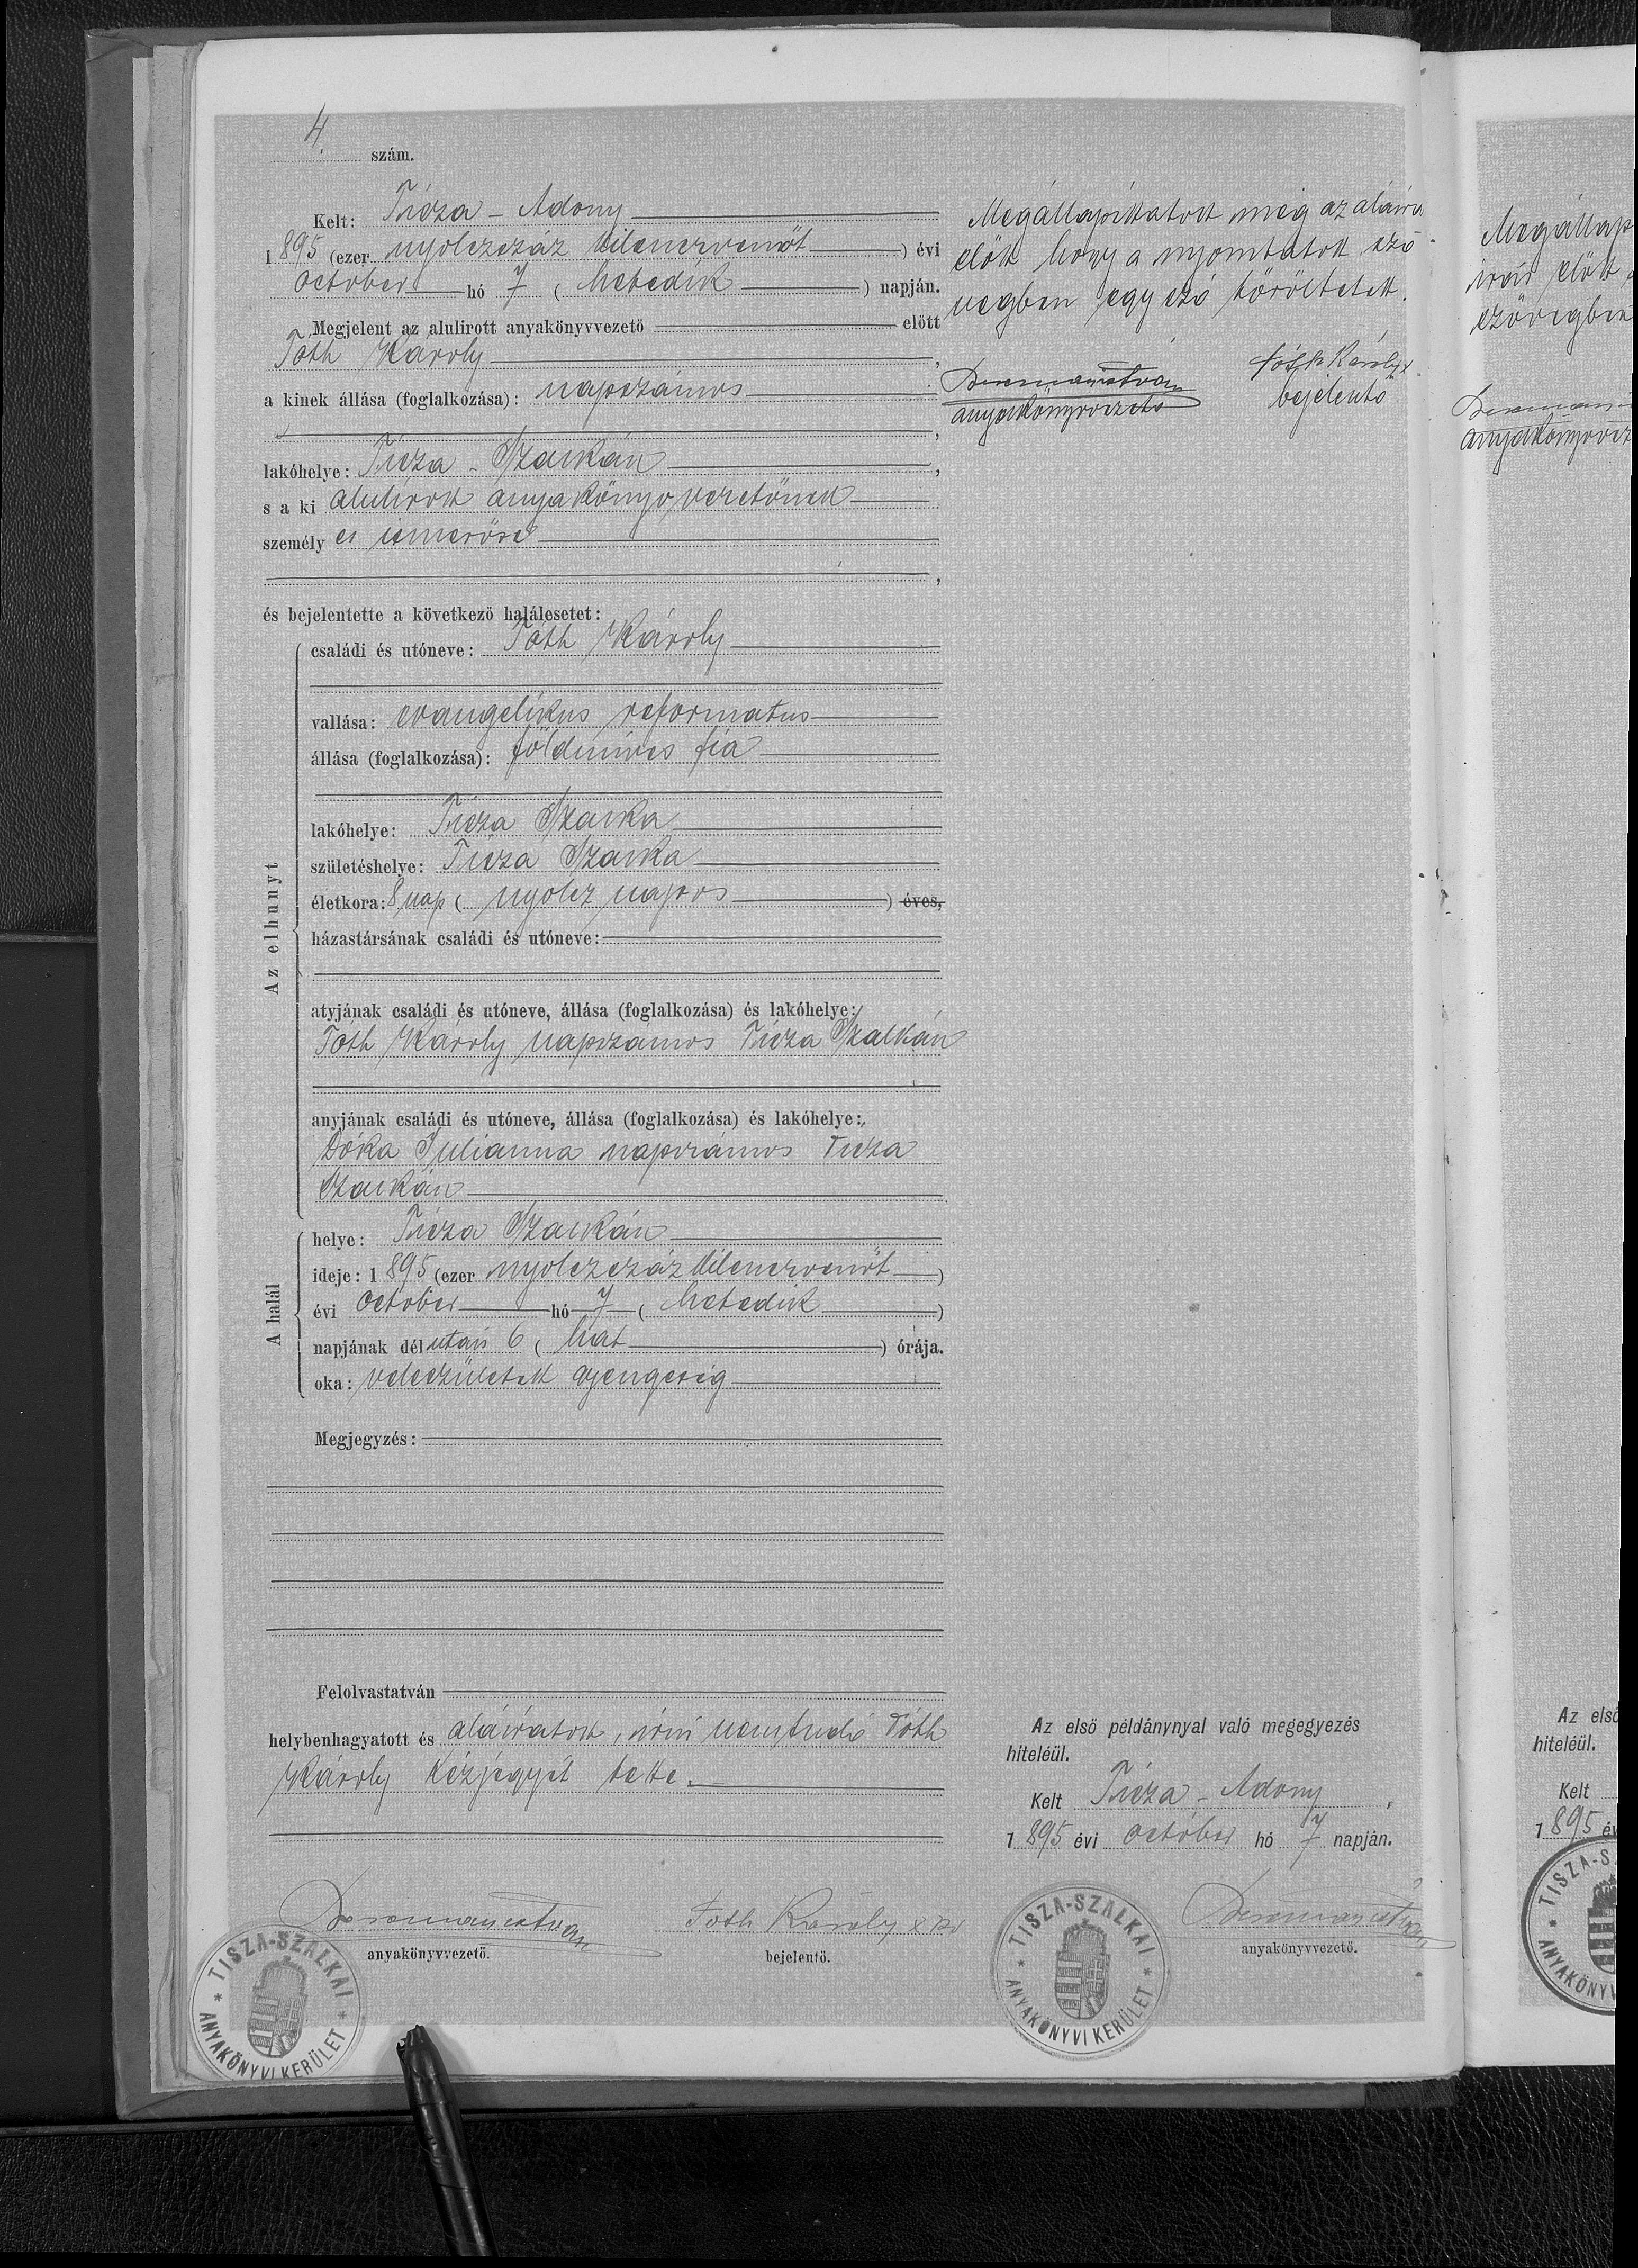 4. szám.
Kelt: Tisza - Adony
1895 (ezer nyolczszáz kilenczvenöt) évi
october hó 7 (hetedik) napján.
Megjelent az alulirott anyakönyvvezető előtt
Tóth Károly,
a kinek állása (foglalkozása): napszámos
lakóhelye: Tisza - Szalkán,
s a ki alulirott anyakönyvvezetőnek
személyes ismerőse
,
és bejelentette a következő halálesetet:
Az elhunyt
családi és utóneve: Tóth Károly
vallása: evangelikus reformatus
állása (foglalkozása): földmíves fia
lakóhelye: Tisza Szalka
születéshelye: Tisza Szalka
életkora: 8 nap (nyolcz napos) éves,
házastársának családi és utóneve:
atyjának családi és utóneve, állása (foglalkozása) és lakóhelye:
Tóth Károly napszámos Tisza Szalkán
anyjának családi és utóneve, állása (foglalkozása) és lakóhelye:
Dóka Julianna napszámos Tisza
Szalkán
A halál
helye: Tisza Szalkán
ideje: 1895 (ezer nyolczszáz kilenczvenöt)
évi october hó 7 (hetedik)
napjának délután 6 (hat) órája.
oka: veleszületett gyengeség
Megjegyzés:
Felolvastatván
helybenhagyatott és aláiratott, irni nem tudó Tóth
Károly kézjegyét tette.
anyakönyvvezető.
Tóth Károly x
bejelentő.
TISZA-SZALKAI
* ANYAKÖNYVI KERÜLET *
Megállapittatott még az aláirás
előtt hogy a nyomtatott szö
vegben egy szó töröltetett.
anyakönyvvezető
Tóth Károly x
bejelentő
Az első példánynyal való megegyezés
hiteléül.
Kelt Tisza - Adony,
1895 évi october hó 7 napján.
anyakönyvvezető.
TISZA-SZALKAI
* ANYAKÖNYVI KERÜLET *
Megállap
irás előtt
szövegben
anyakönyvvez
Az első
hiteléül.
Kelt
1895 év
TISZA-S
* ANYAKÖNYV